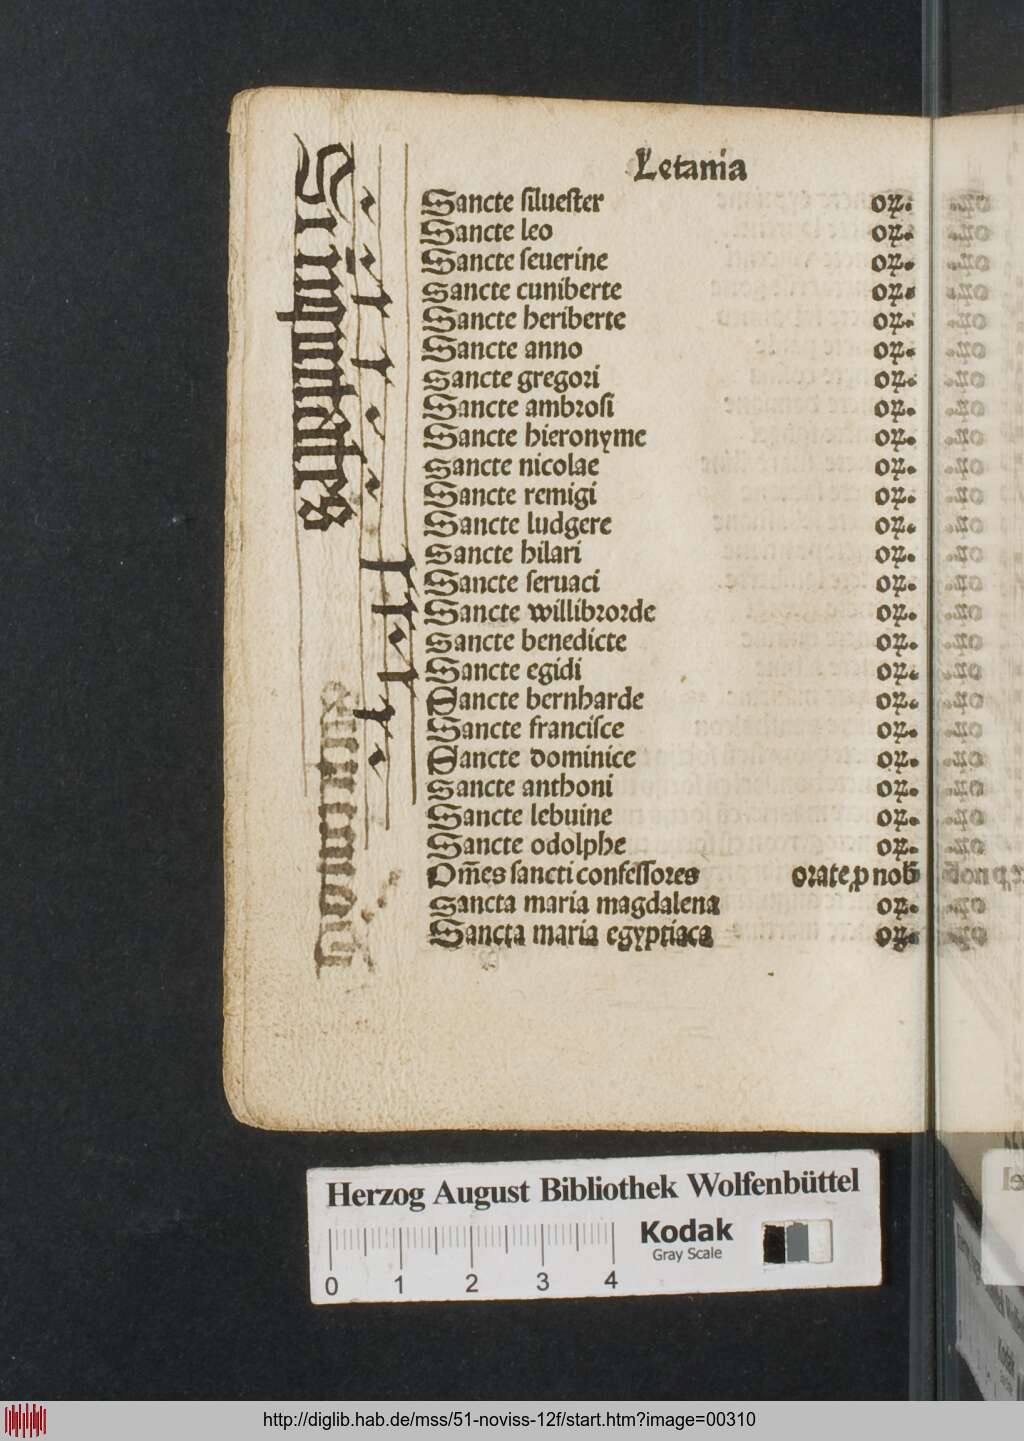 Letania
Sancte silvester oꝛ.
Sancte leo oꝛ.
Sancte seuerine oꝛ.
Sancte cuniberte oꝛ.
Sancte heriberte oꝛ.
Sancte anno oꝛ.
Sancte gregoꝛi oꝛ.
Sancte ambꝛosi oꝛ.
Sancte hieronyme oꝛ.
Sancte nicolae oꝛ.
Sancte remigi oꝛ.
Sancte ludgere oꝛ.
Sancte hilari oꝛ.
Sancte seruaci oꝛ.
Sancte willibꝛoꝛde oꝛ.
Sancte benedicte oꝛ.
Sancte egidi oꝛ.
Sancte bernharde oꝛ.
Sancte francisce oꝛ.
Sancte dominice oꝛ.
Sancte anthoni oꝛ.
Sancte lebuine oꝛ.
Sancte odolphe oꝛ.
Om̄es sancti confessoꝛes oꝛate ꝓ nob̄
Sancta maria magdalena oꝛ.
Sancta maria egyptiaca oꝛ.
Herzog August Bibliothek Wolfenbüttel
Kodak
Gray Scale
0 1 2 3 4
http://diglib.hab.de/mss/51-noviss-12f/start.htm?image=00310